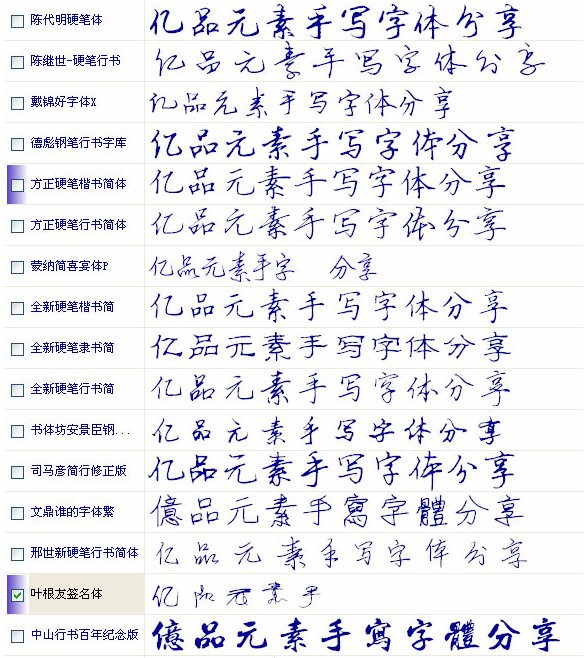 陈代明硬笔体 亿品元素手写字体分享
陈继世-硬笔行书 亿品元素手写字体分享
戴锦好字体X 亿品元素手写字体分享
德彪钢笔行书字库 亿品元素手写字体分享
方正硬笔楷书简体 亿品元素手写字体分享
方正硬笔行书简体 亿品元素手写字体分享
蒙纳简喜宴体P 亿品元素手字 分享
全新硬笔楷书简 亿品元素手写字体分享
全新硬笔隶书简 亿品元素手写字体分享
全新硬笔行书简 亿品元素手写字体分享
书体坊安景臣钢... 亿品元素手写字体分享
司马彦简行修正版 亿品元素手写字体分享
文鼎谁的字体繁 億品元素手寫字體分享
邢世新硬笔行书简体 亿品元素手写字体分享
叶根友签名体 亿品元素手
中山行书百年纪念版 億品元素手寫字體分享